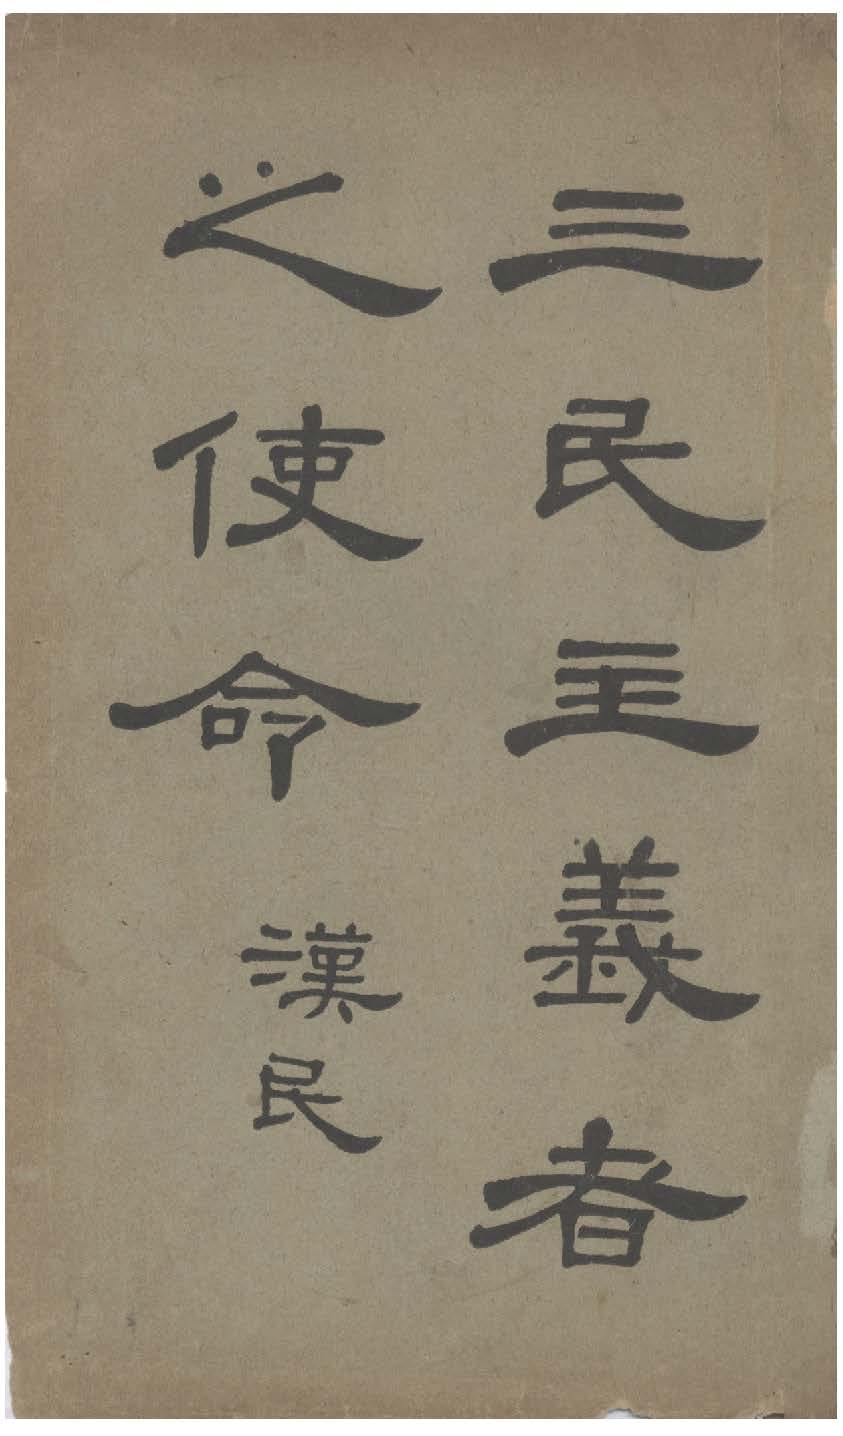 三民主義者
之使命
漢民